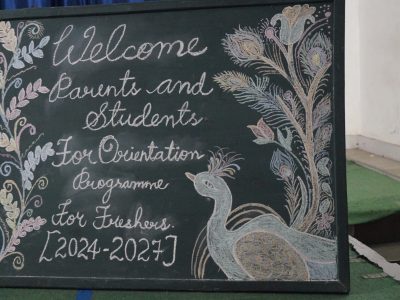 Welcome
Parents and
Students
For Orientation
Programme
For Freshers.
[2024-2027]